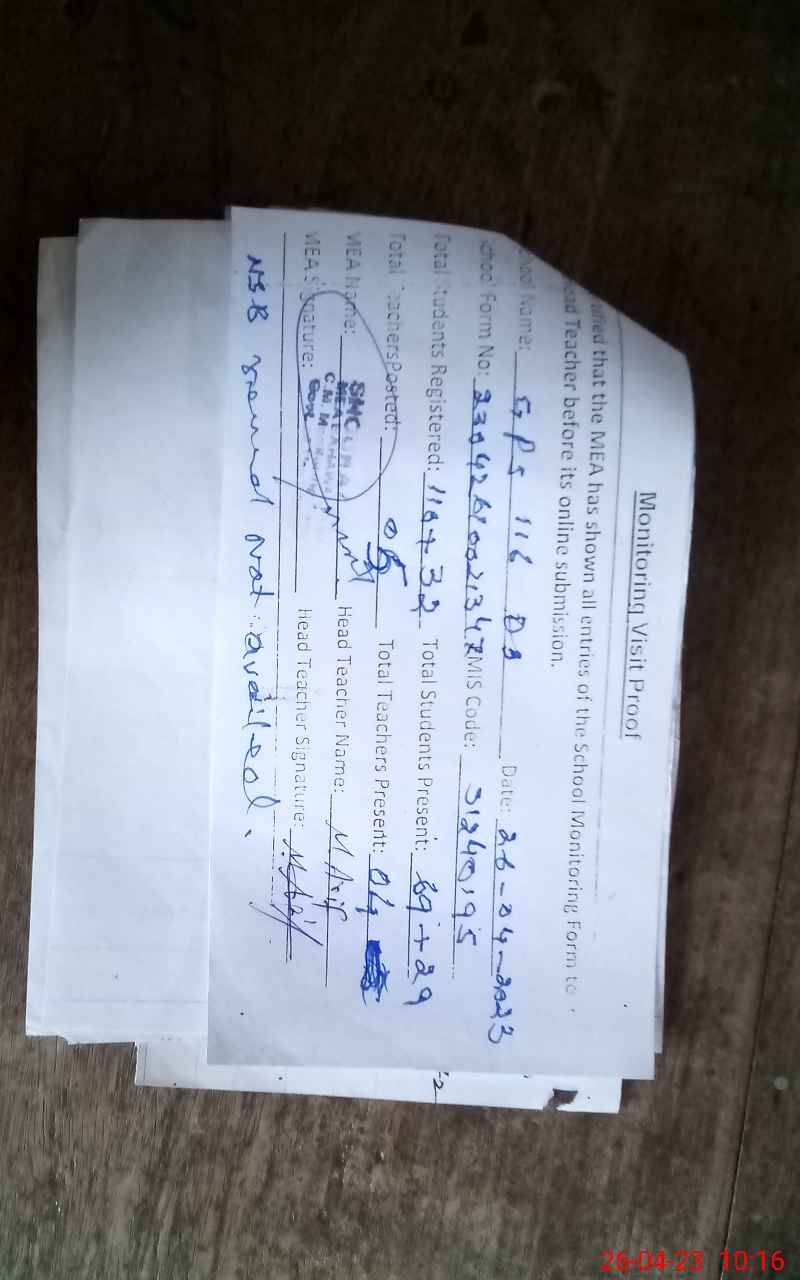 Monitoring Visit Proof
ified that the MEA has shown all entries of the School Monitoring Form to
ead Teacher before its online submission.
ool Name: GPS 116 DB Date: 26-04-2023
chool Form No: MIS Code: 31240195
Total Students Registered: 110+32 Total Students Present: 69+29
Total Teachers Posted: 05 Total Teachers Present: 04
MEA Name: Head Teacher Name: M Asif
MEA Signature: Head Teacher Signature: M Asif
NSB record Not availed.
26-04-23 10:16